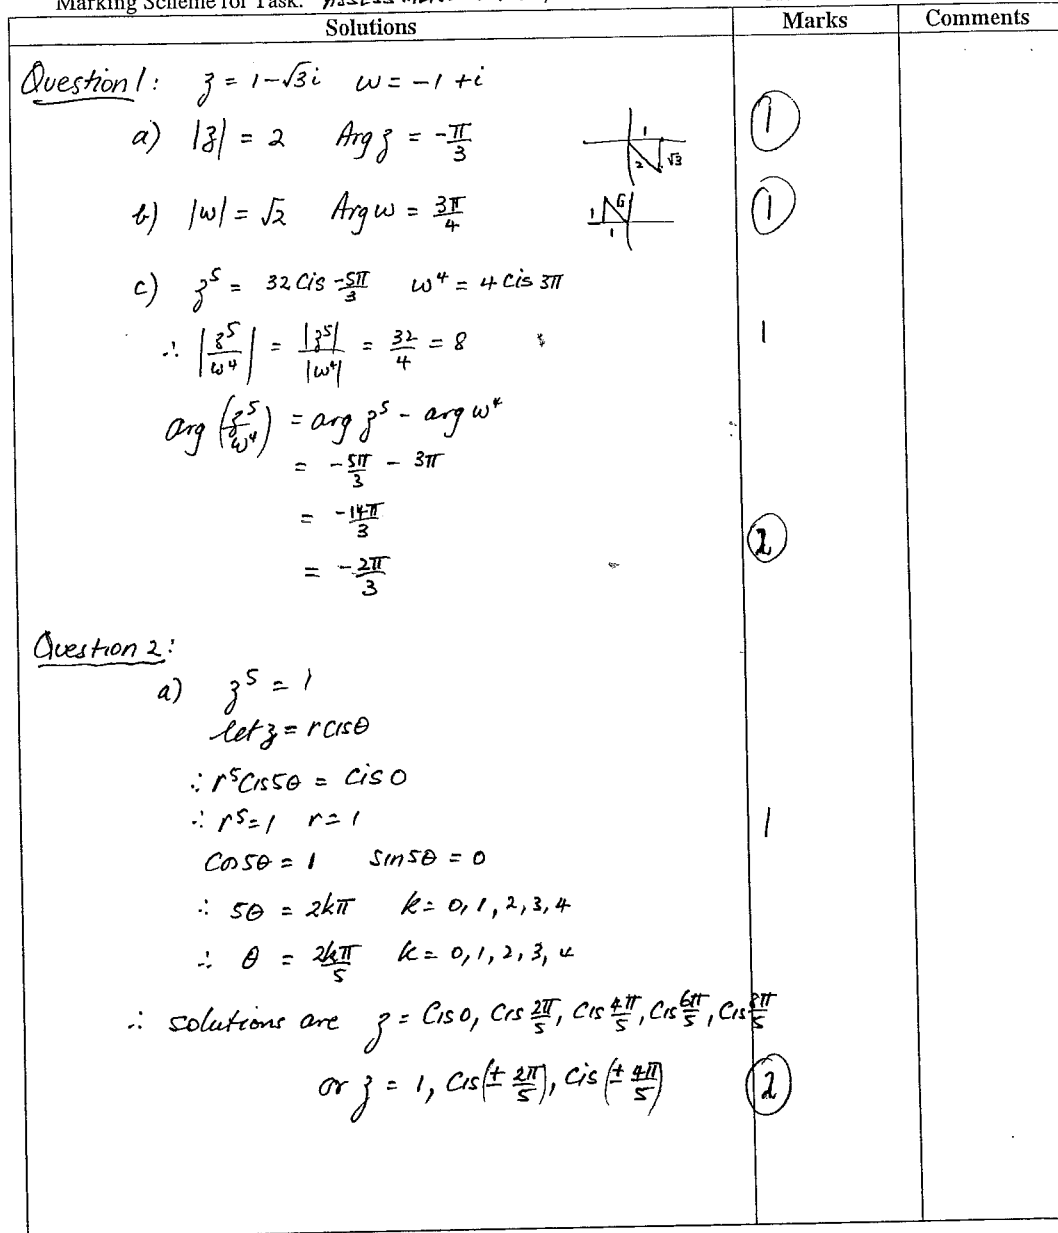 Marking Scheme for Task:
Solutions Marks Comments
Question 1: z = 1-√3i w = -1 +i
a) |z| = 2 Arg z = -π/3 1 2 √3 1
b) |w| = √2 Arg w = 3π/4 1 √2 1 1
c) z^5 = 32 Cis -5π/3 w^4 = 4 Cis 3π
∴ |z^5/w^4| = |z^5|/|w^4| = 32/4 = 8 1
arg (z^5/w^4) = arg z^5 - arg w^4
= -5π/3 - 3π
= -14π/3
= -2π/3 2
Question 2:
a) z^5 = 1
let z = r cisθ
∴ r^5 Cis5θ = Cis 0
∴ r^5=1 r=1 1
Cos5θ = 1 sin5θ = 0
∴ 5θ = 2kπ k= 0,1,2,3,4
∴ θ = 2kπ/5 k= 0,1,2,3,4
∴ solutions are z = Cis 0, Cis 2π/5, Cis 4π/5, Cis 6π/5, Cis 8π/5
or z = 1, Cis(± 2π/5), Cis(± 4π/5) 2